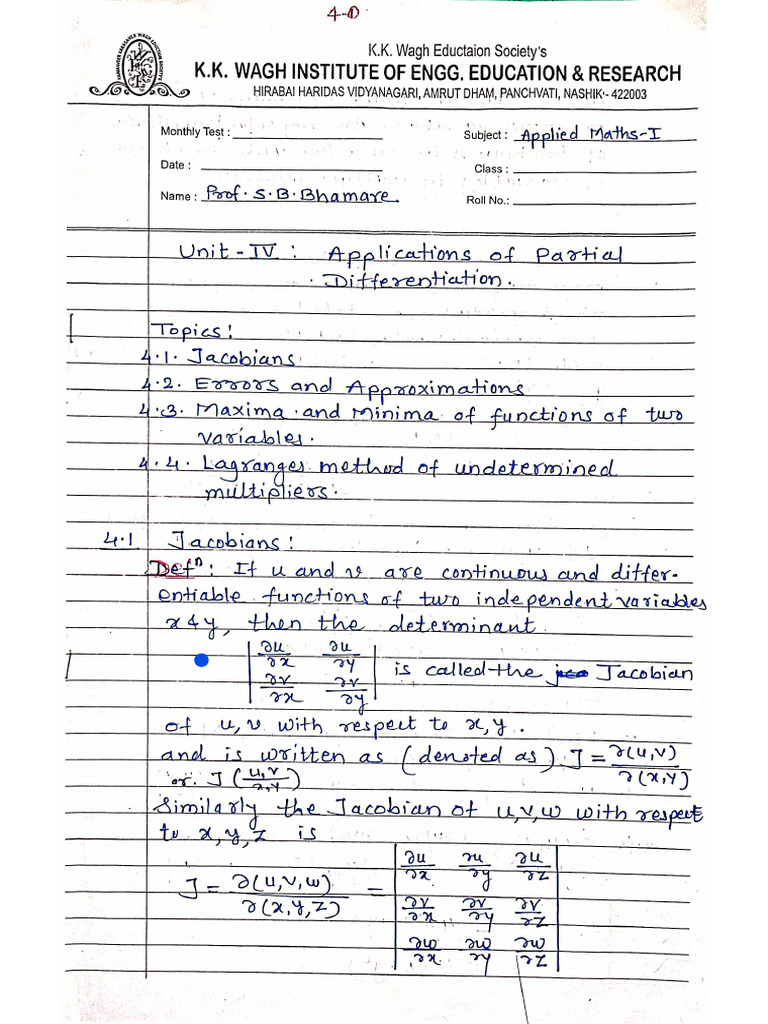 4-①
K.K. Wagh Eductaion Society's
K.K. WAGH INSTITUTE OF ENGG. EDUCATION & RESEARCH
HIRABAI HARIDAS VIDYANAGARI, AMRUT DHAM, PANCHVATI, NASHIK - 422003
Monthly Test :
Subject : Applied Maths-I
Date :
Class :
Name : Prof. S. B. Bhamare.
Roll No.:
Unit - IV : Applications of Partial
Differentiation.
Topics:
4.1. Jacobians
4.2. Errors and Approximations
4.3. Maxima and Minima of functions of two
variables.
4.4. Lagranges method of undetermined
multipliers.
4.1 Jacobians:
Defⁿ: If u and v are continuous and differ-
entiable functions of two independent variables
x & y, then the determinant
| ∂u/∂x ∂u/∂y |
| ∂v/∂x ∂v/∂y | is called the Jacobian
of u, v with respect to x, y.
and is written as (denoted as) J = ∂(u,v)/∂(x,y)
or J (u,v/x,y)
Similarly the Jacobian of u,v,w with respect
to x, y, z is
J = ∂(u,v,w)/∂(x,y,z) = | ∂u/∂x ∂u/∂y ∂u/∂z |
| ∂v/∂x ∂v/∂y ∂v/∂z |
| ∂w/∂x ∂w/∂y ∂w/∂z |